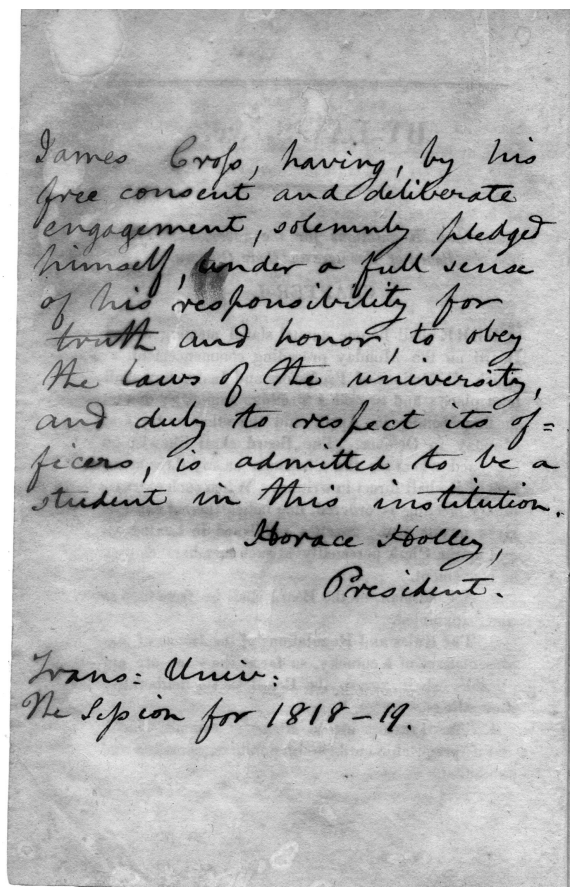 James Cross, having, by his
free consent and deliberate
engagement, solemnly pledged
himself, under a full sense
of his responsibility for
truth and honor, to obey
the laws of the university,
and duly to respect its of=
ficers, is admitted to be a
student in this institution.
Horace Holley,
President.
Trans: Univ:
The Session for 1818-19.